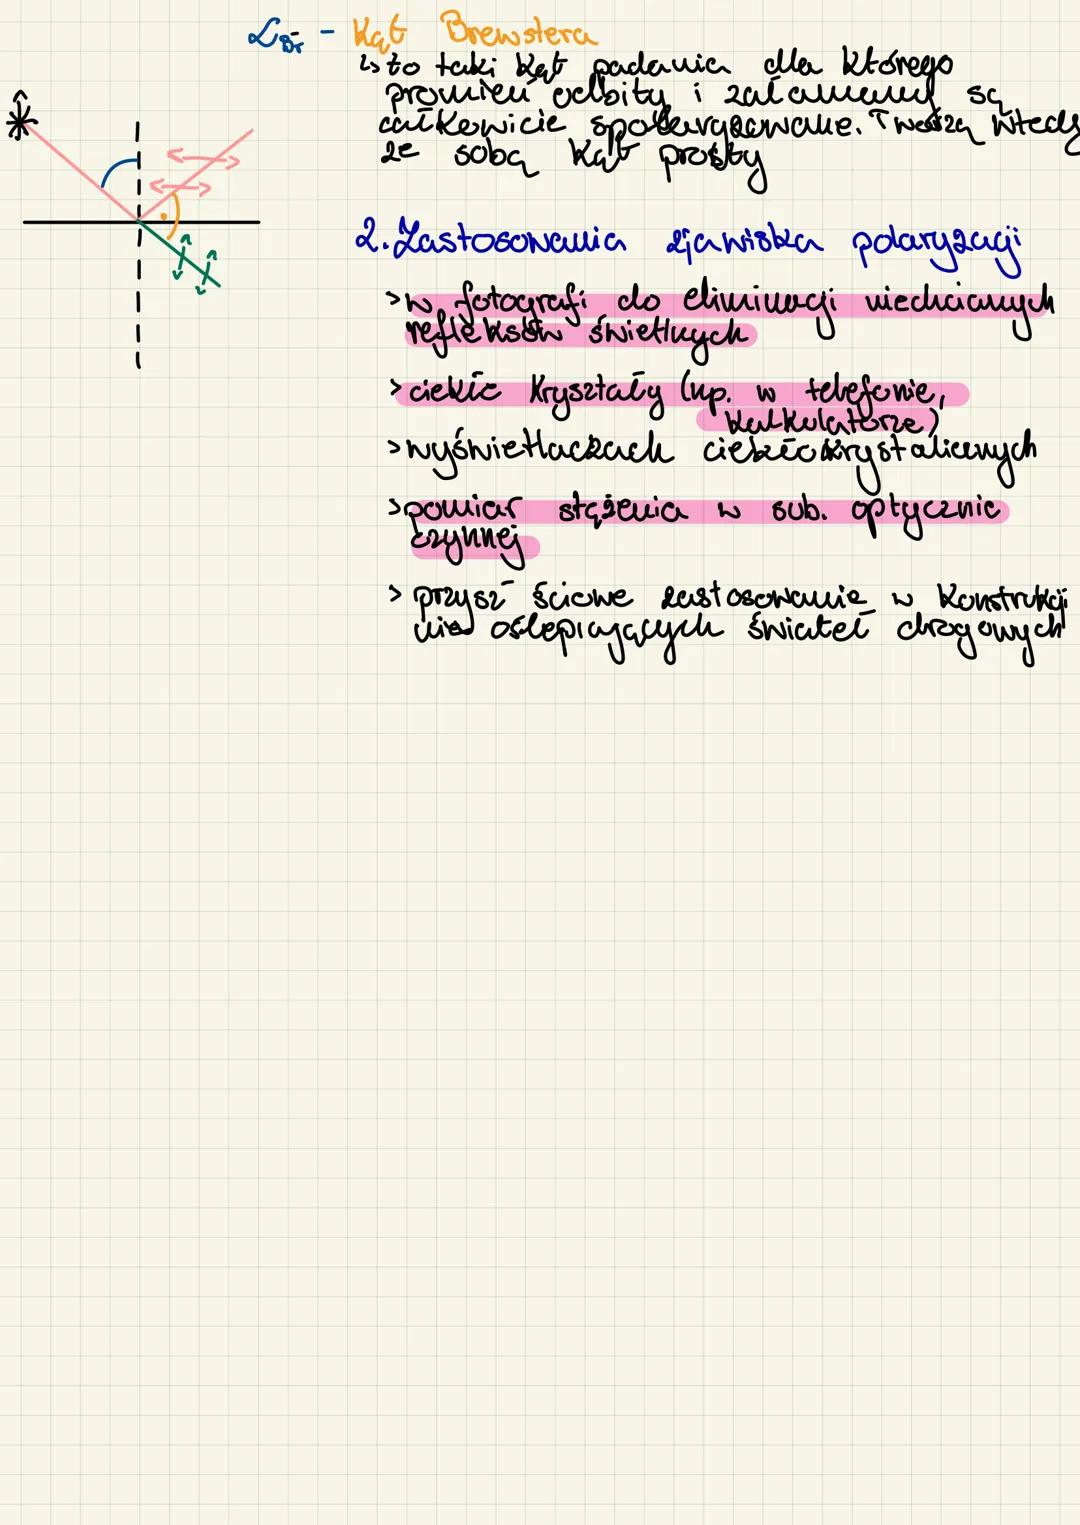 αBr - Kąt Brewstera
↳ to taki kąt padania dla którego
promień odbity i załamany są
całkowicie spolaryzowane. Tworzą wtedy
ze sobą kąt prosty
2. Zastosowania zjawiska polaryzacji
> w fotografi do eliminacji niechcianych
refleksów świetlnych
> ciekłe kryształy (np. w telefonie,
kalkulatorze)
> wyświetlaczach ciekłokrystalicznych
> pomiar stężenia w sub. optycznie
czynnej
> przyszłościowe zastosowanie w konstrukcji
nie oślepiających świateł drogowych